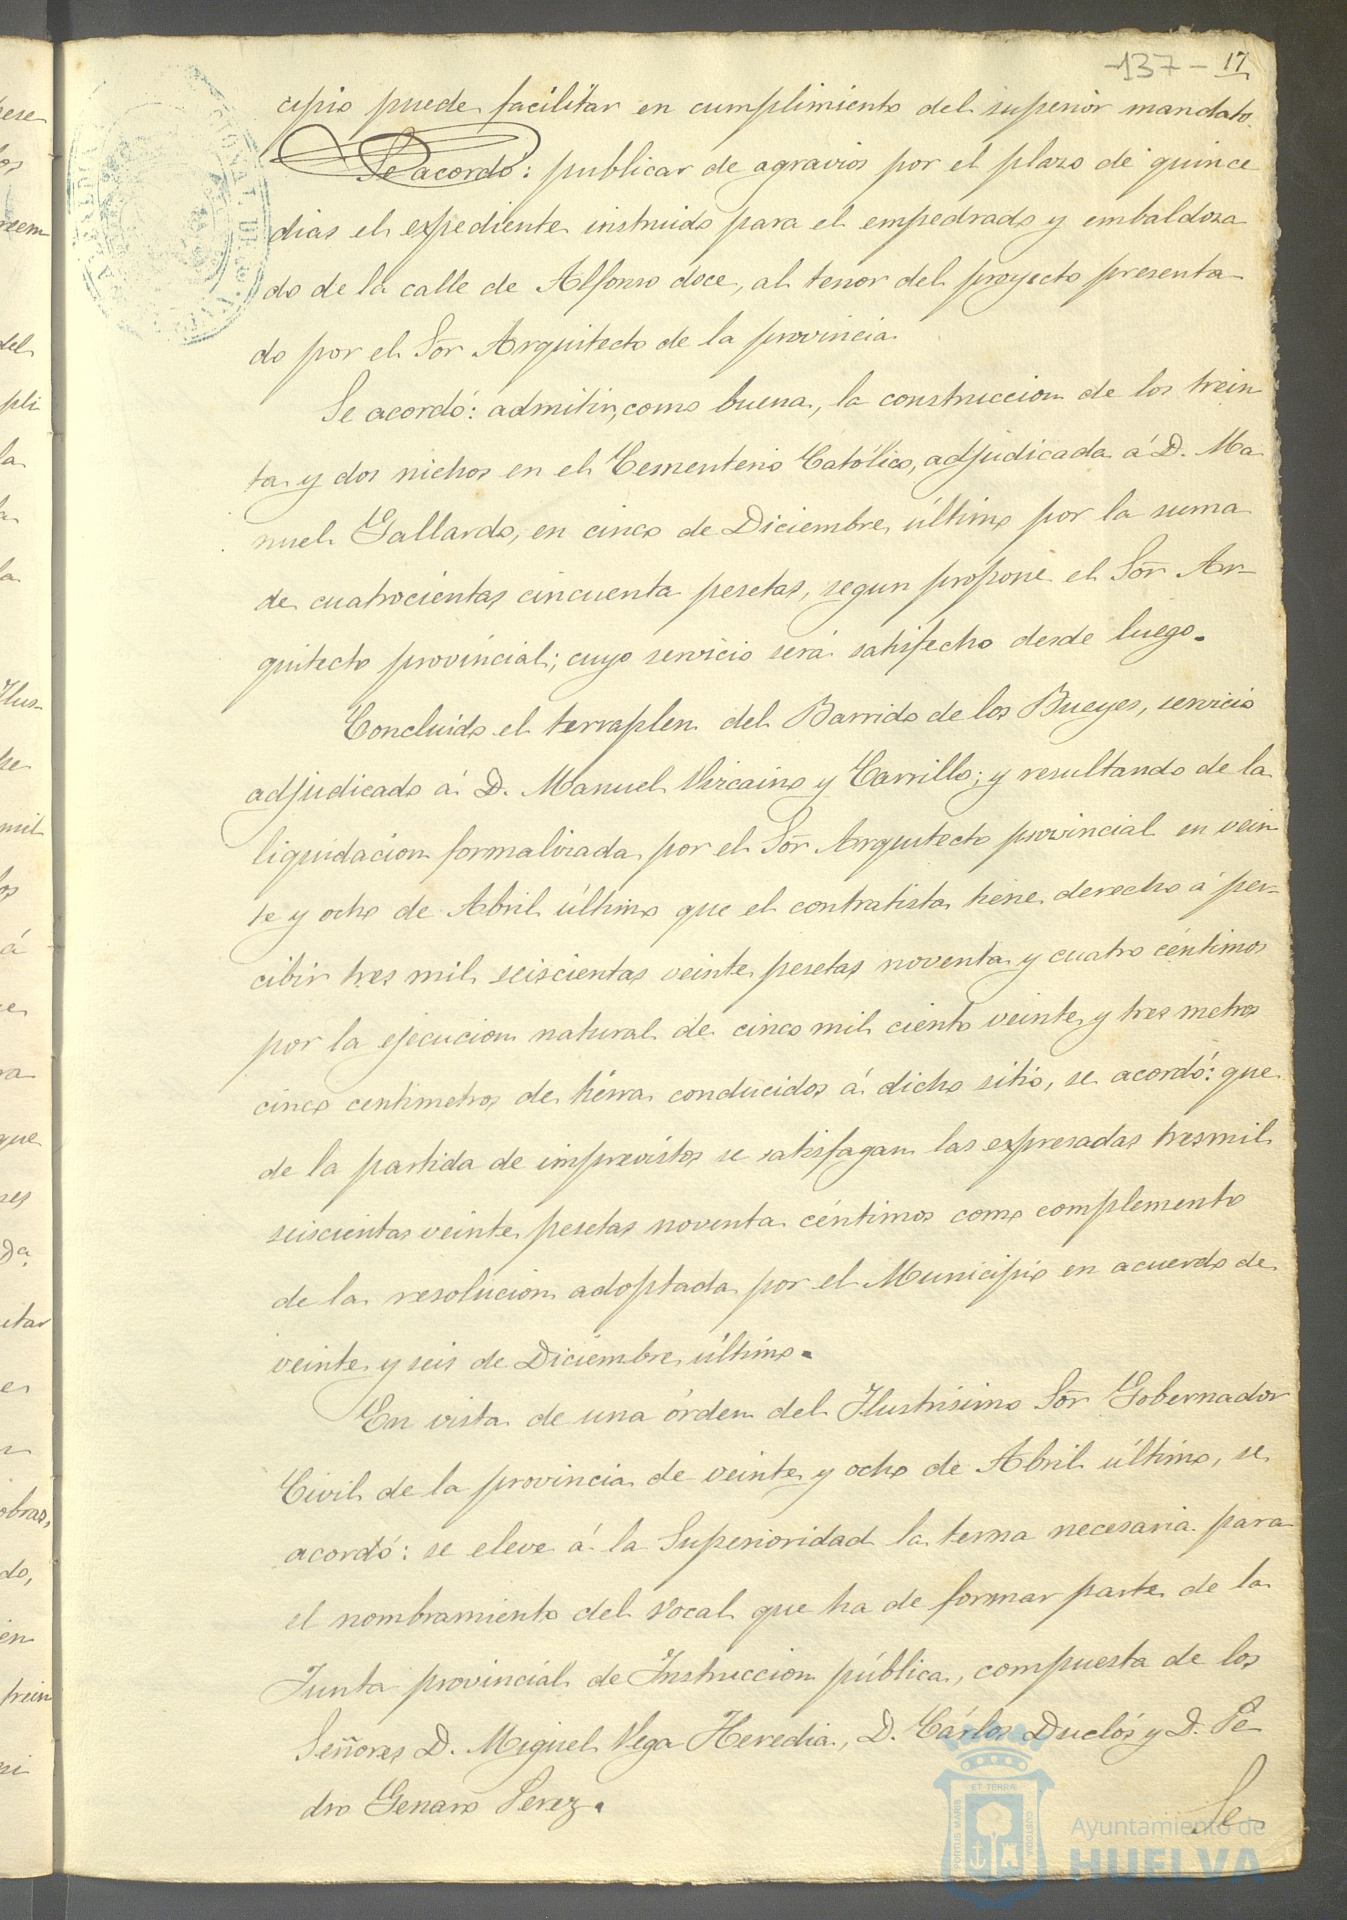 -137- 17
cipio puede facilitar en cumplimiento del superior mandato.
Se acordó: publicar de agravios por el plazo de quince
dias el expediente instruido para el empedrado y embaldosa
do de la calle de Alfonso doce, al tenor del proyecto presenta
do por el Sor Arquitecto de la provincia.
Se acordó: admitir, como buena, la construccion de los trein
ta y dos nichos en el Cementerio Católico, adjudicada á D. Ma
nuel Gallardo, en cinco de Diciembre último por la suma
de cuatrocientas cincuenta pesetas, segun propone el Sor Ar-
quitecto provincial; cuyo servicio será satisfecho desde luego.
Concluido el terraplen del Barrido de los Bueyes, servicio
adjudicado á D. Manuel Vizcaino y Carrillo; y resultando de la
liquidacion formalizada por el Sor Arquitecto provincial en vein
te y ocho de Abril último que el contratista tiene derecho á per-
cibir tres mil seiscientas veinte pesetas noventa y cuatro céntimos
por la ejecucion natural de cinco mil ciento veinte y tres metros
cinco centimetros de tierra conducidos á dicho sitio, se acordó: que
de la partida de imprevistos se satisfagan las expresadas tres mil
seiscientas veinte pesetas noventa céntimos como complemento
de la resolucion adoptada por el Municipio en acuerdo de
veinte y seis de Diciembre último.
En vista de una órden del Ilustrisimo Sor Gobernador
Civil de la provincia de veinte y ocho de Abril último, se
acordó: se eleve á la Superioridad la terna necesaria para
el nombramiento del Vocal que ha de formar parte de la
Junta provincial de Instruccion pública, compuesta de los
Señores D. Miguel Vega Heredia, D. Cárlos Duclós y D. Pe
dro Genaro Perez.
Se
PORTUS MARIS ET TERRÆ CUSTODIA
Ayuntamiento de
HUELVA